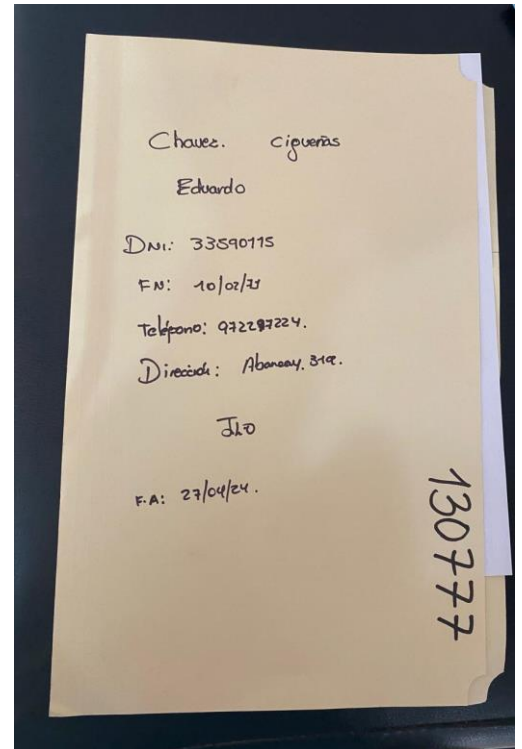 Chavez. Cigueñas
Eduardo
DNI: 33590115
FN: 10/02/71
Teléfono: 972287224.
Dirección: Abancay. 319.
ILO
F.A: 27/04/24.
130777